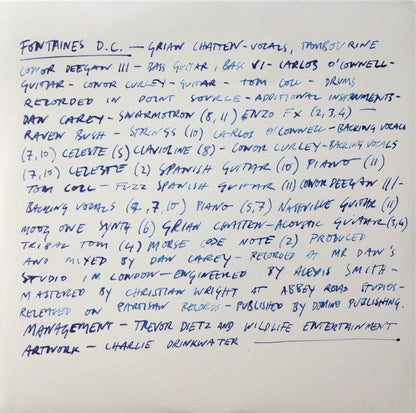 FONTAINES D.C. — GRIAN CHATTEN - VOCALS, TAMBOURINE
CONOR DEEGAN III - BASS GUITAR, BASS VI - CARLOS O'CONNELL -
GUITAR - CONOR CURLEY - GUITAR - TOM COLL - DRUMS
RECORDED IN POINT SOURCE - ADDITIONAL INSTRUMENTS -
DAN CAREY - SWARMOTRON (8,11) ENZO FX (2,3,4) —
RAVEN BUSH - STRINGS (10) CARLOS O'CONNELL - BACKING VOCALS
(7,10) CELESTE (5) CLAVIOLINE (8) - CONOR CURLEY - BACKING VOCALS
(7,10) CELESTE (2) SPANISH GUITAR (10) PIANO (11)
TOM COLL - FUZZ SPANISH GUITAR (11) CONOR DEEGAN III -
BACKING VOCALS (2,7,10) PIANO (5,7) NASHVILLE GUITAR (11)
MOOG ONE SYNTH (6) GRIAN CHATTEN - ACOUSTIC GUITAR (3,4)
TRIBAL TOM (4) MORSE CODE NOTE (2) PRODUCED
AND MIXED BY DAN CAREY - RECORDED AT MR DAN'S
STUDIO IN LONDON - ENGINEERED BY ALEXIS SMITH -
MASTERED BY CHRISTIAN WRIGHT AT ABBEY ROAD STUDIOS -
RELEASED ON PARTISAN RECORDS - PUBLISHED BY DOMINO PUBLISHING.
MANAGEMENT - TREVOR DIETZ AND WILDLIFE ENTERTAINMENT
ARTWORK - CHARLIE DRINKWATER